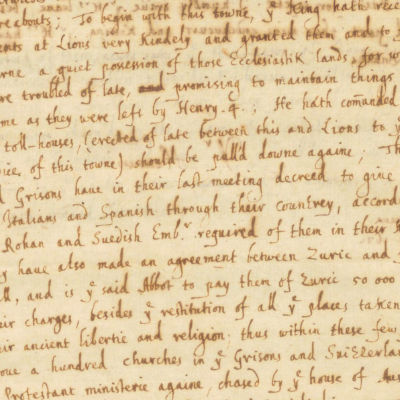 reabouts; To begin with this towne, yᵉ King hath rece
ents at Lions very kindely and granted them and to
rne a quiet possession of those Ecclesiastik lands, for w
re troubled of late, and promising to maintain things
me as they were left by Henry .4. ; He hath com̄anded
toll-houses, (erected of late between this and Lions to y
ice, of this towne) should be pull'd downe againe; Th
d Grisons haue in their last meeting decreed to giue
Italians and Spanish through their countrey, accord
Rohan and Suedish Embʳ. required of them in their
y haue also made an agreement between Zuric and
ll, and is yᵉ said Abbot to pay them of Zuric 50 000
eir charges, besides yᵉ restitution of all yᵉ places taken
eir ancient libertie and religion; thus within these few
oue a hundred churches in yᵉ Grisons and Suizzerlan
Protestant ministerie againe, chased by yᵉ house of Aus